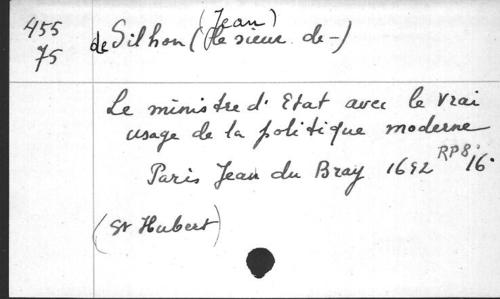 455
75
de Silhon (Jean) (le sieur de -)
Le ministre d'Etat avec le vrai
usage de la politique moderne
Paris Jean du Bray 1692 RP8° 16°
(St Hubert)